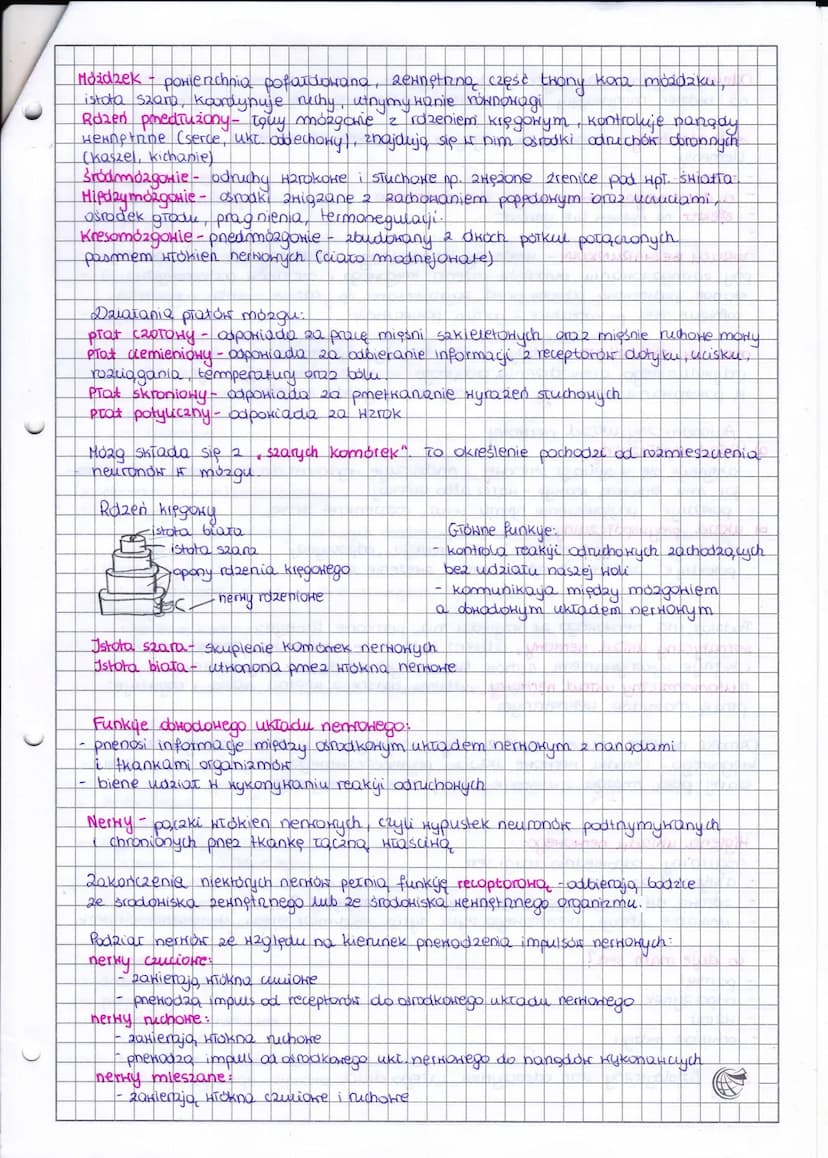 Móżdżek - powierzchnia pofałdowana, zewnętrzną część tworzy kora móżdżku,
istota szara, koordynuje ruchy, utrzymywanie równowagi
Rdzeń przedłużony - łączy mózgowie z rdzeniem kręgowym, kontroluje narządy
wewnętrzne (serce, ukt. oddechowy), znajdują się w nim ośrodki odruchów obronnych
(kaszel, kichanie)
Śródmózgowie - odruchy wzrokowe i słuchowe np. zwężone źrenice pod wpł. światła.
Międzymózgowie - ośrodki związane z zachowaniem popędowym oraz uczuciami,
ośrodek głodu, pragnienia, termoregulacji.
Kresomózgowie - przedmózgowie - zbudowany z dwóch półkul połączonych
pasmem włókien nerwowych (ciało modzelowate)
Działania płatów mózgu:
płat czołowy - odpowiada za pracę mięśni szkieletowych oraz mięśnie ruchowe mowy
Płat ciemieniowy - odpowiada za odbieranie informacji z receptorów dotyku, ucisku,
rozciągania, temperatury oraz bólu.
Płat skroniowy - odpowiada za przetwarzanie wyrażeń słuchowych
płat potyliczny - odpowiada za wzrok
Mózg składa się z „szarych komórek". To określenie pochodzi od rozmieszczenia
neuronów w mózgu.
Rdzeń kręgowy
istota biała
istota szara
opony rdzenia kręgowego
nerwy rdzeniowe
Główne funkcje:
- kontrola reakcji odruchowych zachodzących
bez udziału naszej woli
- komunikacja między mózgowiem
a obwodowym układem nerwowym
Istota szara - skupienie komórek nerwowych
Istota biała - utworzona przez włókna nerwowe
Funkcje obwodowego układu nerwowego:
- przenosi informacje między ośrodkowym układem nerwowym z narządami
i tkankami organizmów
- bierze udział w wykonywaniu reakcji odruchowych
Nerwy - pączki włókien nerwowych, czyli wypustek neuronów podtrzymywanych
i chronionych przez tkankę łączną właściwą
Zakończenia niektórych nerwów pełnią funkcję receptorową - odbierają bodźce
ze środowiska zewnętrznego lub ze środowiska wewnętrznego organizmu.
Podział nerwów ze względu na kierunek przewodzenia impulsów nerwowych:
nerwy czuciowe:
- zawierają włókna czuciowe
- przewodzą impuls od receptorów do ośrodkowego układu nerwowego
nerwy ruchowe:
- zawierają włókna ruchowe
- przewodzą impuls od ośrodkowego ukt. nerwowego do narządów wykonawczych
nerwy mieszane:
- zawierają włókna czuciowe i ruchowe